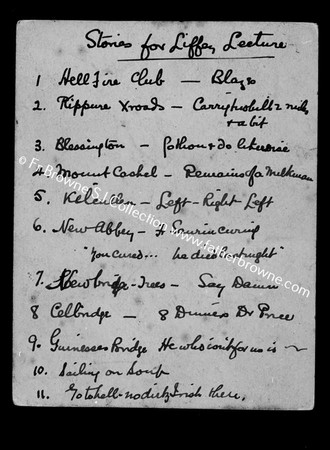 Stories for Liffey Lecture
1 Hell Fire Club — Blazes
2. Kippure Xroads — Carryhisbill 2 miles
& a bit
3. Blessington — Go thou & do likewise
4 Mount Cashel — Remains of a Milkman
5. Kilcullen — Left - Right Left
6. New Abbey — curing
"You cured... he died last night"
7. Newbridge - Trees — Say Damn
8 Celbridge — 8 Dinners Dr Price
9. Guinesses Bridge He who isnt for us is ~
10. Sailing on Soup
11. Go to hell - no dirty Irish there.
© Fr Browne S.J. Collection, www.fatherbrowne.com